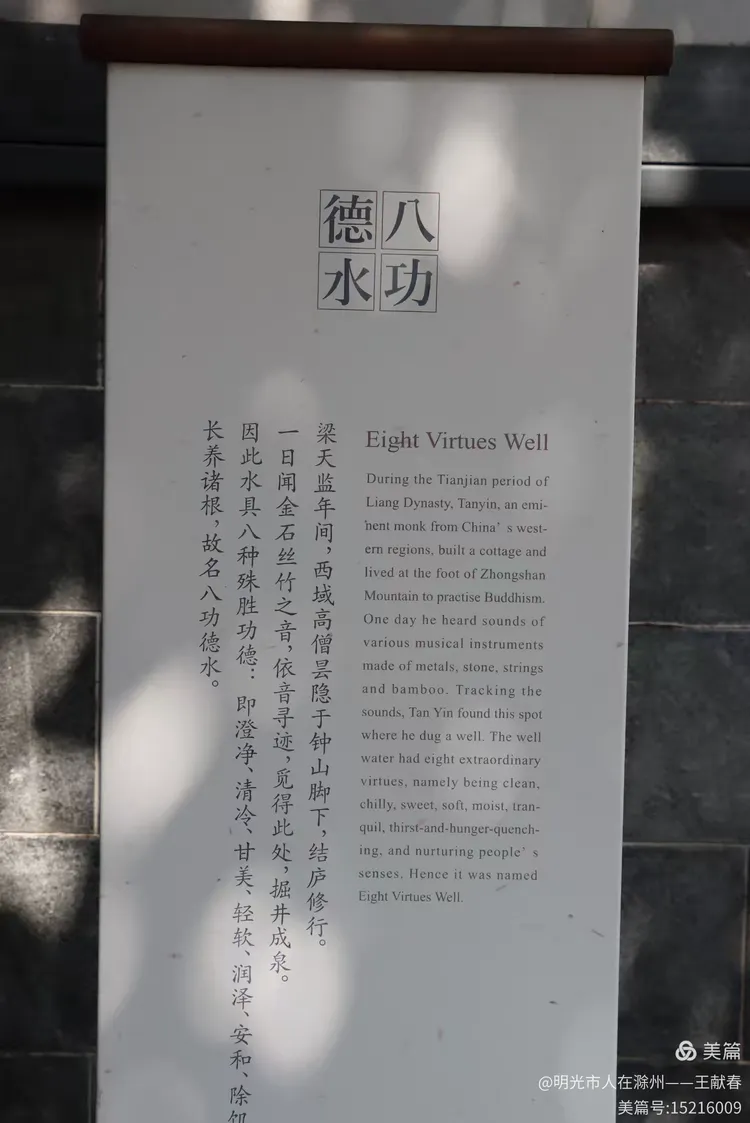 八功德水
梁天监年间，西域高僧昙隐于钟山脚下，结庐修行。
一日闻金石丝竹之音，依音寻迹，觅得此处，掘井成泉。
因此水具八种殊胜功德：即澄净、清冷、甘美、轻软、润泽、安和、除饥
长养诸根，故名八功德水。
Eight Virtues Well
During the Tianjian period of
Liang Dynasty, Tanyin, an emi-
nent monk from China's west-
ern regions, built a cottage and
lived at the foot of Zhongshan
Mountain to practise Buddhism.
One day he heard sounds of
various musical instruments
made of metals, stone, strings
and bamboo. Tracking the
sounds, Tan Yin found this spot
where he dug a well. The well
water had eight extraordinary
virtues, namely being clean,
chilly, sweet, soft, moist, tran-
quil, thirst-and-hunger-quench-
ing, and nurturing people's
senses. Hence it was named
Eight Virtues Well.
美篇
@明光市人在滁州——王献春
美篇号:15216009